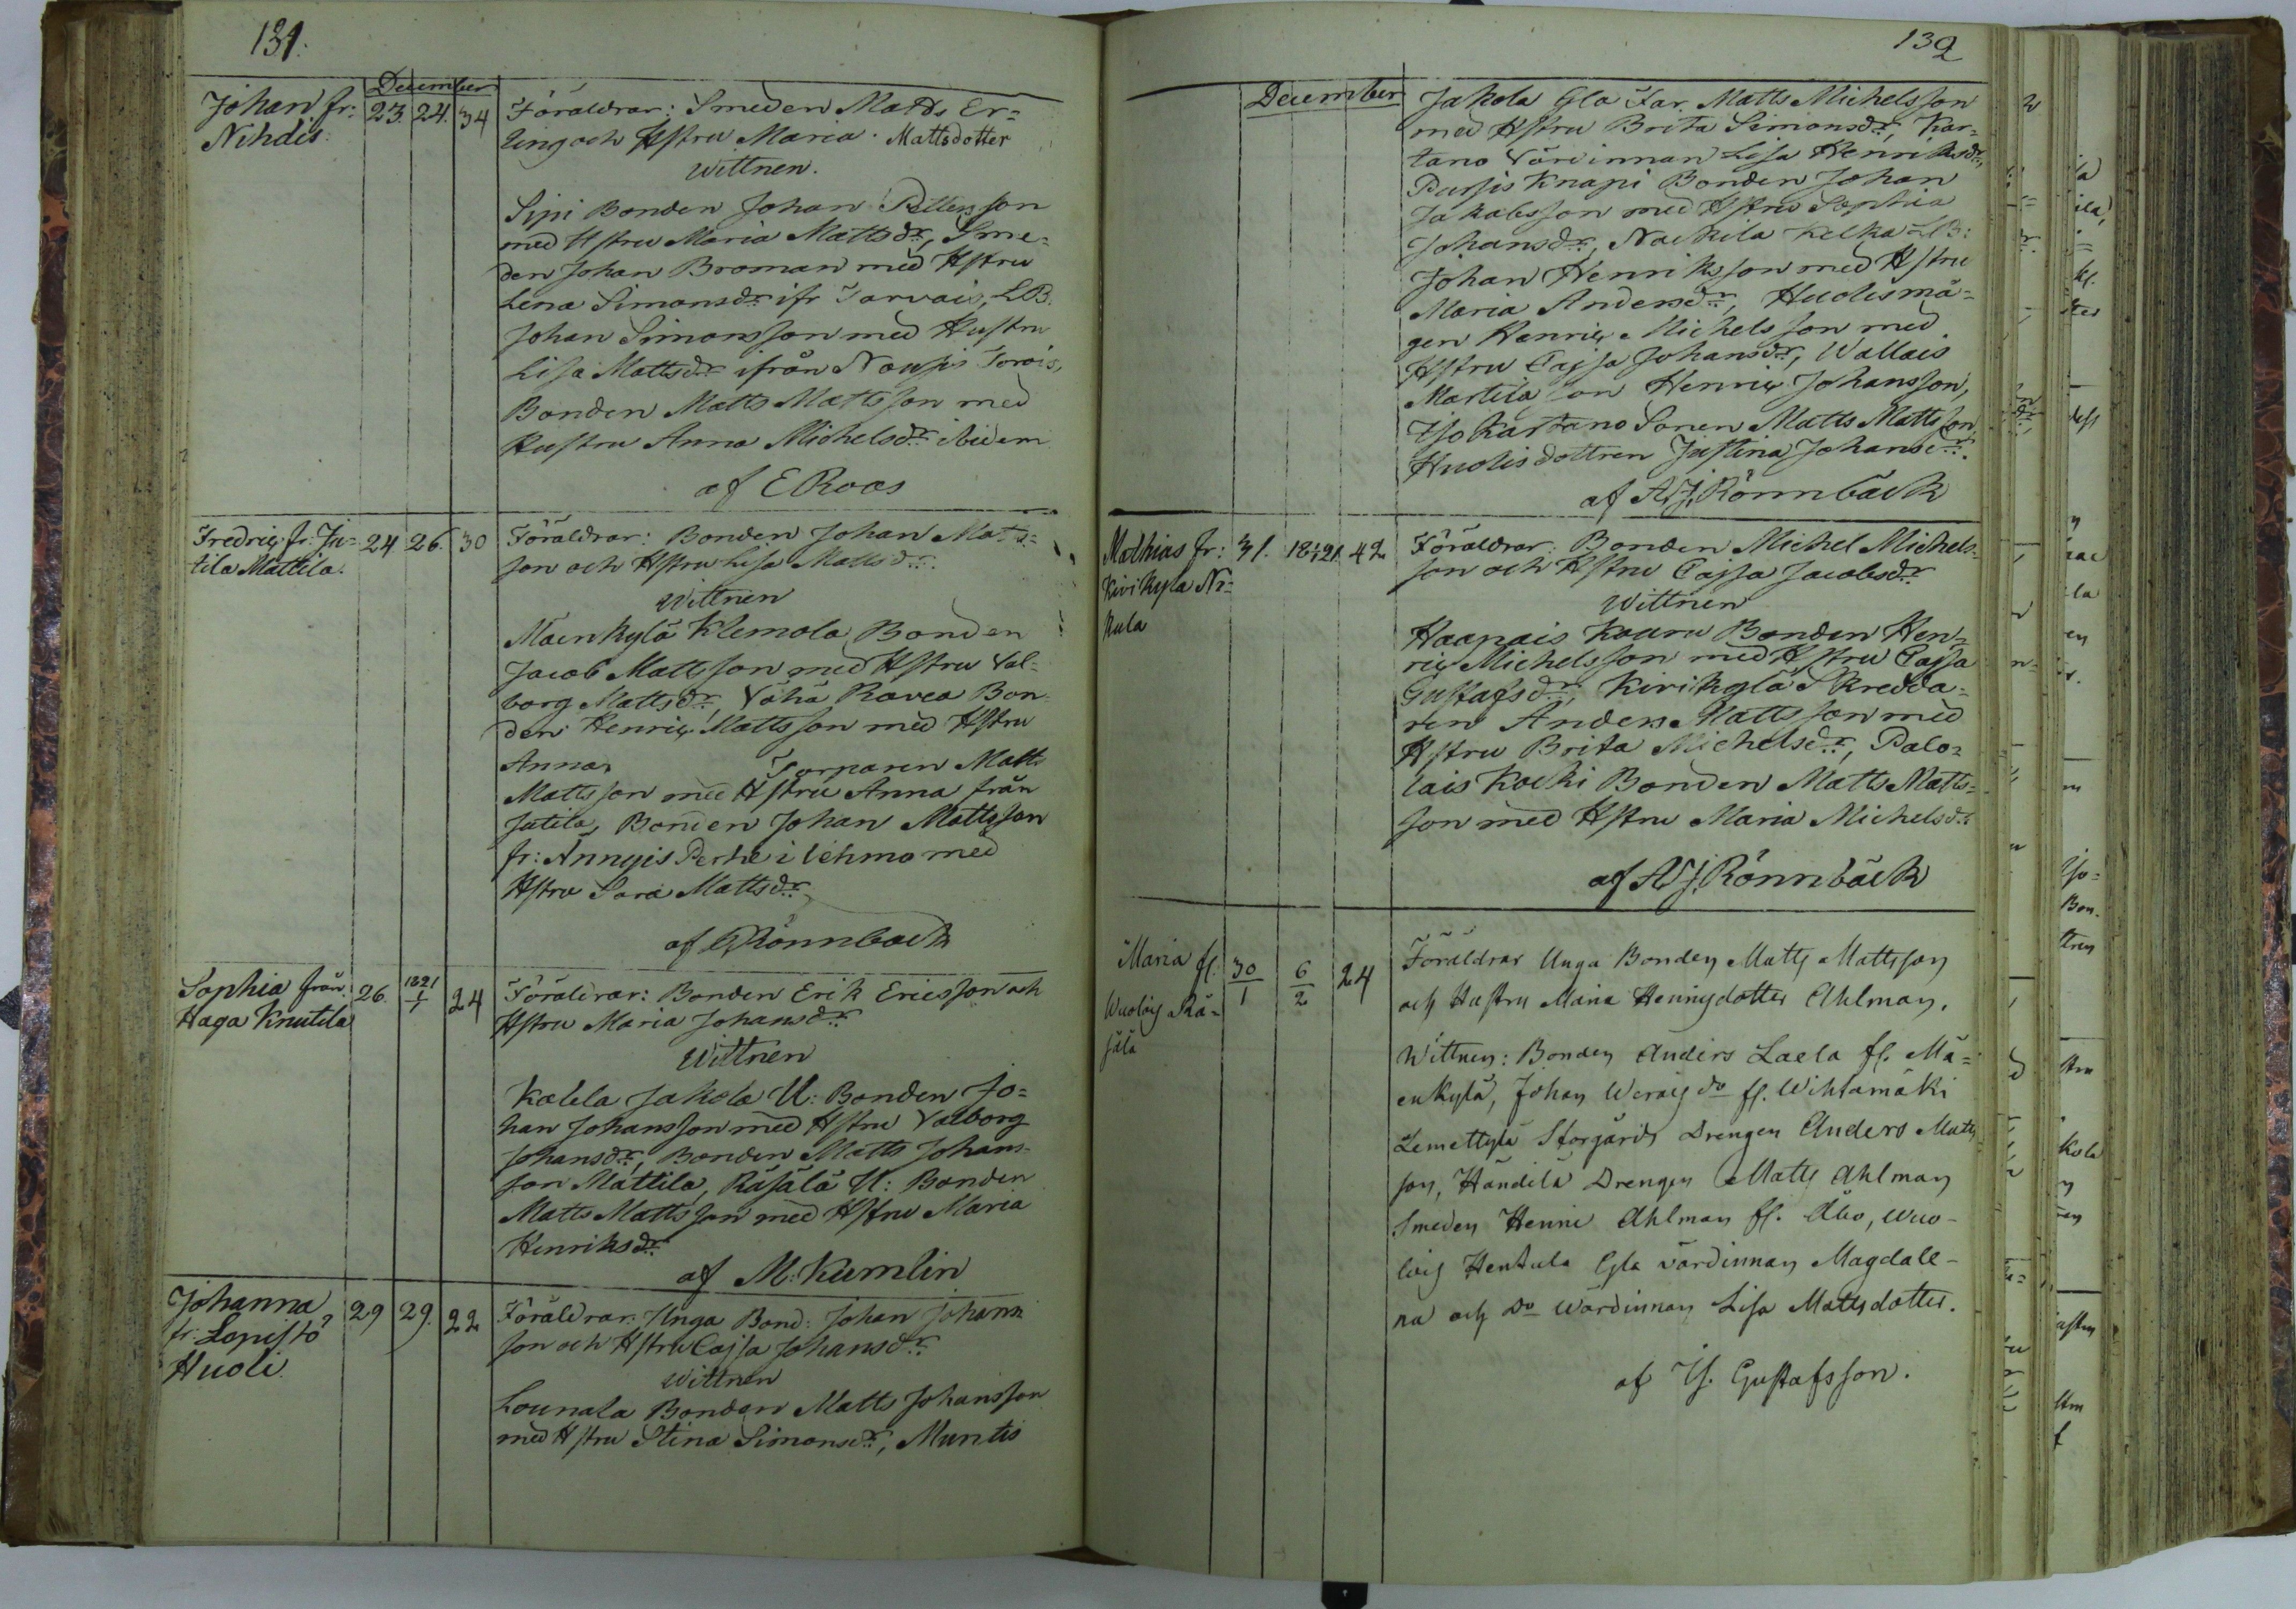 131.
December
Johan fr:
Nihdis.
23. 24. 34
Föräldrar: Smeden Matts Er=
ling och Hstru Maria Mattsdotter
Wittnen.
Sipi Bonden Johan Pettersson
med Hstru Maria Mattsdr, Sme=
den Johan Broman med Hstru
Lena Simonsdr ifr Torvois, LB.
Johan Simonsson med Hustru
Lisa Mattsdr ifrån Nousis Torois,
Bonden Matts Mattsson med
Hustru Anna Michelsdr ibidem
af E Roos
Fredric fr. Ju=
tila Mattila.
24 26. 30
Föräldrar: Bonden Johan Matts=
son och Hstru Lisa Mattsdr
Wittnen
Mäenkylä Klemola Bonden
Jacob Mattsson med Hstru Val=
borg Mattsdr, Vähä Ravea Bon
den Henric Mattsson med Hstru
Anna, Torparen Matts
Mattsson med Hstru Anna från
Jutila, Bonden Johan Mattsson
fr: Annyis Perhe i Vehmo med
Hstru Sara Mattsdr
af Rönnback
Sophia från
Haga Knutila
26. 1821 1/1 24
Föräldrar: Bonden Erik Ericsson och
Hstru Maria Johansdr
Wittnen
Kalela Jakola U: Bonden Jo=
han Johansson med Hstru Valborg
Johansdr, Bonden Matts Johans=
son Mattila, Räsälä U: Bonden
Matts Mattsson med Hstru Maria
Henriksdr
af M. Kumlin
Johanna
fr: Lopistö
Huoli.
29 29. 22
Föräldrar: Unga Bond: Johan Johans
son och Hstru Cajsa Johansdr
Wittnen
Lounala Bonden Matts Johansson
med Hstru Stina Simonsdr, Muntis
132
December
Jakola Gla Far. Matts Michelsson
med Hstru Brita Simonsdr, Kar=
tano Värdinnan Lisa Henriksdr,
Pursis Knapi Bonden Johan
Jakobsson med Hstru Sophia
Johansdr, Nackila Kelka LB:
Johan Henriksson med Hstru
Maria Andersdr, Huolismå=
gen Henric Michelsson med
Hstru Cajsa Johansdr, Wallais
Martila son Henric Johansson,
Iso Kartano Sonen Matts Mattsson
Huolis dottren Justina Johansdr.
af A.J. Rönnbäck
Mathias fr:
Kivikyla Ni=
kula
31. 18 1/1 21. 42
Föräldrar: Bonden Michel Michels=
son och Hstru Cajsa Jacobsdr
Wittnen
Haapais Kouru Bonden Hen=
ric Michelsson med Hstru Cajsa
Gustafsdr, Kivikylä Skredda=
ren Anders Mattsson med
Hstru Brita Michelsdr, Palo=
lais Kocki Bonden Matts Matts=
son med Hstru Maria Michelsdr
af A J. Rönnbäck
Maria fr.
Wuolois Rä=
sälä
30/1 6/2 24
Föräldrar Unga Bonden Matts Mattsson
och Hustru Maria Henricsdotter Ahlman.
Wittnen: Bonden Anders Laela fr. Mä=
enkylä, Johan Werais do fr. Wihtamäki
Lemettylä Storgårds Drengen Anders Matts
son, Händilä Drengen Matts Ahlman
Smeden Henric Ahlman fr. Åbo, Wuo-
lois Hentula Gla värdinnan Magdale-
na och do wärdinnan Lisa Mattsdotter.
af Is. Gustafsson.